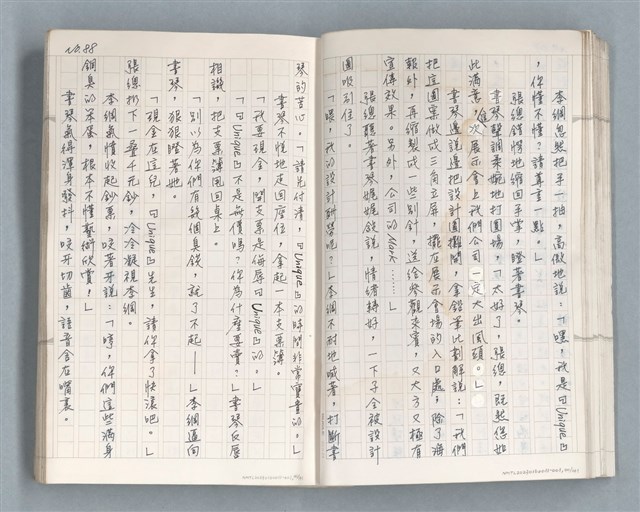 李綱忽然把手一拍，高傲地說：「嘿，我是『Unique』
，你懂不懂？請尊重一點。」
張總錯愕地縮回手掌，瞪著書琴。
書琴聲調柔婉地打圓場，「太好了，張總，既然您如
此滿意，這次展示會上我們公司一定大出風頭。」
書琴邊說邊把設計圖攤開，拿鉛筆比劃解說：「我們
把這圖案做成三角立屏，擺在展示會場的入口處，除了海
報外，再縮製成一些別針，送給參觀來賓，又大方又極有
宣傳效果。另外，公司的Mark……」
張總聽著書琴娓娓敘說，情緒轉好，一下子全被設計
圖吸引住了。
「喂，我的設計酬勞呢？」李綱不耐地喊著，打斷書
No. 88
琴的苦心。「請先付清，『Unique』的時間非常寶貴的。」
書琴不悅地走回座位，拿起一本支票簿。
「我要現金，開支票是侮辱『Unique』的。」
「『Unique』不是無價嗎？你為什麼要賣？」書琴反唇
相譏，把支票簿丟回桌上。
「別以為你們有幾個臭錢，就了不起——」李綱逼向
書琴，狠狠瞪著她。
「現金在這兒，『Unique』先生，請你拿了快滾吧。」
張總扔下一疊千元鈔，冷冷凝視李綱。
李綱氣憤收起鈔票，咬著牙說：「哼，你們這些滿身
銅臭的笨蛋，根本不懂藝術欣賞，」
書琴氣得渾身發抖，咬牙切齒，語音含在嘴裏。